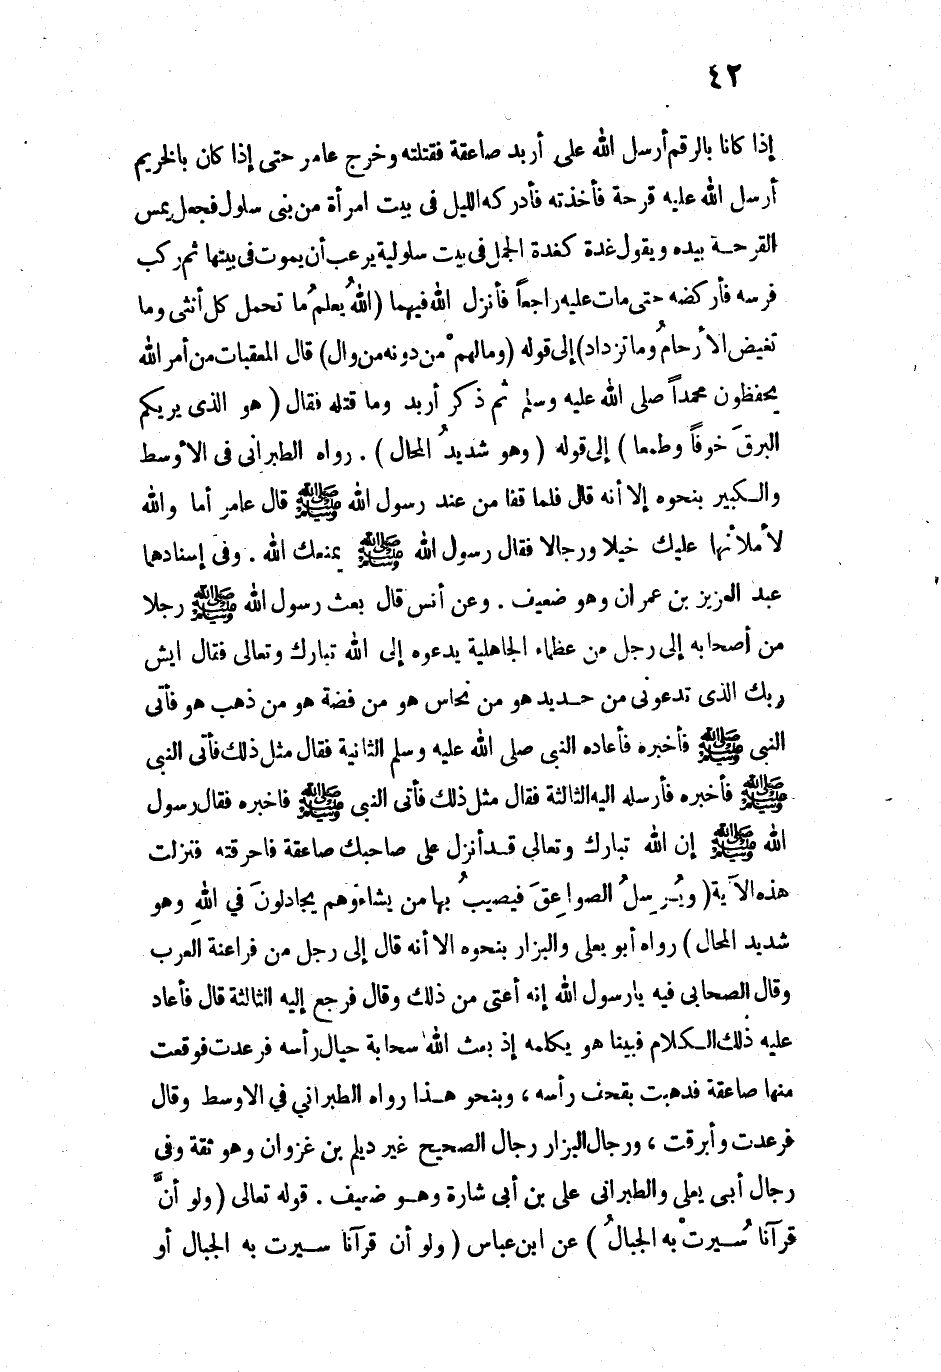 ٤٢
إذا كانا بالرقم أرسل الله على أربد صاعقة فقتلته وخرج عامر حتى إذا كان بالخريم
أرسل الله عليه قرحة فأخذته فأدركه الليل فى بيت امرأة من بنى سلول فجعل يمس
القرحة بيده ويقول غدة كغدة الجمل فى بيت سلولية يرعب أن يموت فى بيتها ثم ركب
فرسه فأركضه حتى مات عليه راجعاً فأنزل الله فيهما (اللهُ يعلمُ ما تحمل كل أنثى وما
تغيض الأرحامُ وما تزداد) إلى قوله (وما لهمْ من دونه من وال) قال المعقبات من أمر الله
يحفظون محمداً صلى الله عليه وسلم ثم ذكر أربد وما قتله فقال ( هو الذى يريكم
البرقَ خوفاً وطمعا ) إلى قوله ( وهو شديدُ المحال ) . رواه الطبرانى فى الأوسط
والكبير بنحوه إلا أنه قال فلما قفا من عند رسول الله ﷺ قال عامر أما والله
لأملأنها عليك خيلا ورجالا فقال رسول الله ﷺ يمنعك الله . وفى إسنادهما
عبد العزيز بن عمران وهو ضعيف . وعن أنس قال بعث رسول الله ﷺ رجلا
من أصحابه إلى رجل من عظماء الجاهلية يدعوه إلى الله تبارك وتعالى فقال ايش
ربك الذى تدعونى من حديد هو من نحاس هو من فضة هو من ذهب هو فأتى
النبى ﷺ فأخبره فأعاده النبى صلى الله عليه وسلم الثانية فقال مثل ذلك فأتى النبى
ﷺ فأخبره فأرسله اليه الثالثة فقال مثل ذلك فأتى النبى ﷺ فاخبره فقال رسول
الله ﷺ إن الله تبارك وتعالى قد أنزل على صاحبك صاعقة فاحرقته فنزلت
هذه الآية ( ويُرسِلُ الصواعِقَ فيصيبُ بها من يشاءُ وهم يجادلونَ في اللهِ وهو
شديد المحال ) رواه أبو يعلى والبزار بنحوه الا أنه قال إلى رجل من فراعنة العرب
وقال الصحابى فيه يا رسول الله إنه أعتى من ذلك وقال فرجع إليه الثالثة قال فأعاد
عليه ذلك الكلام فبينا هو يكلمه إذ بعث الله سحابة حيال رأسه فرعدت فوقعت
منها صاعقة فذهبت بقحف رأسه ، وبنحو هذا رواه الطبراني في الاوسط وقال
فرعدت وأبرقت ، ورجال البزار رجال الصحيح غير ديلم بن غزوان وهو ثقة وفى
رجال أبى يعلى والطبرانى على بن أبى شارة وهو ضعيف . قوله تعالى ( ولو أنَّ
قرآنا سُيرتْ به الجبالُ ) عن ابن عباس ( ولو أن قرآنا سيرت به الجبال أو